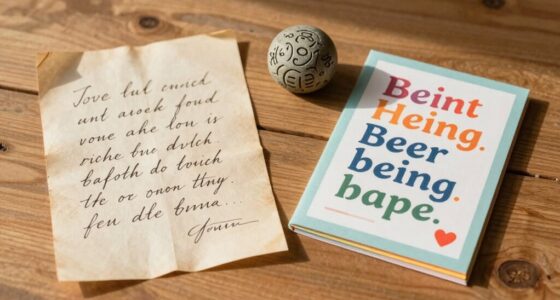 Jove bul cnricd
unt aroek foud
voue ahe lou is
riche bue dvlch
bafoth do louch
the or onon thny.
feu dle buna...
Beint
Heing.
Beer
being.
bape.